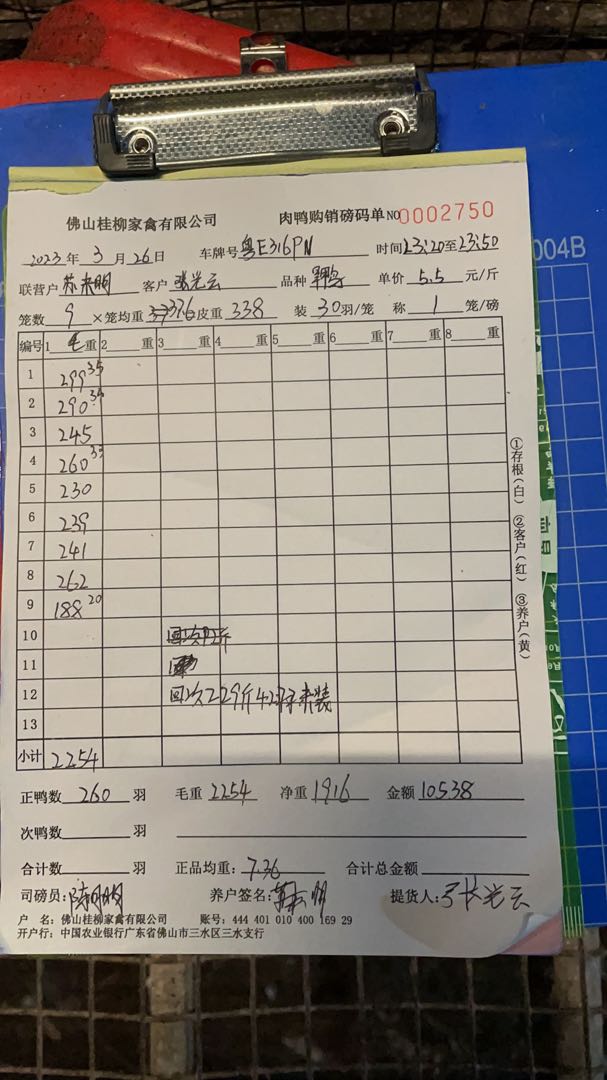 佛山桂柳家禽有限公司 肉鸭购销磅码单 NO 0002750
2023年 3月 26日 车牌号 粤E316PN 时间 23:20 至 23:50
联营户 苏来明 客户 张光云 品种 单价 5.5 元/斤
笼数 9 ×笼均重 37.6 皮重 338 装 30 羽/笼 称 1 笼/磅
编号 1 毛重 2 重 3 重 4 重 5 重 6 重 7 重 8 重
1 299 35
2 290 34
3 245
4 260 33
5 230
6 239
7 241
8 262
9 188 20
10
11
12 回次229斤42只未装
13
小计 2254
正鸭数 260 羽 毛重 2254 净重 1916 金额 10538
次鸭数 羽
合计数 羽 正品均重: 7.36 合计总金额
司磅员: 养户签名: 提货人: 张光云
户 名: 佛山桂柳家禽有限公司 账号: 444 401 010 400 169 29
开户行: 中国农业银行广东省佛山市三水区三水支行
①存根(白) ②客户(红) ③养户(黄)
004B